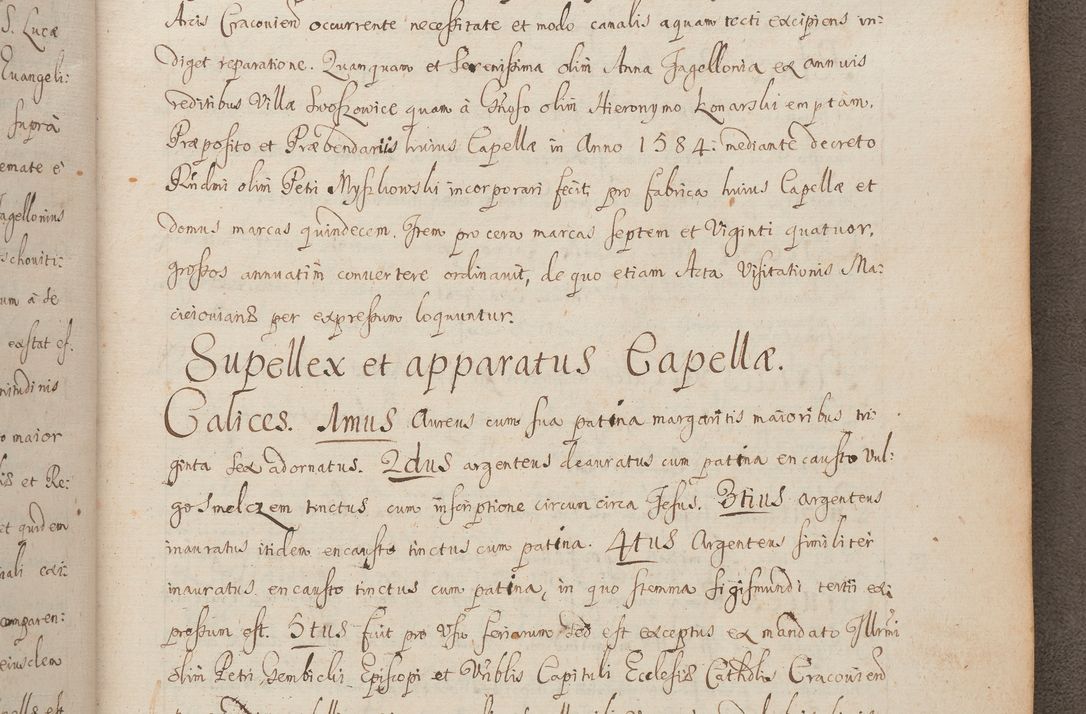 S. Lucæ
Euangeli:
suprà
emate è
Jagellonius
schouiti:
um à de
exstat ef:
nitudinis
o maior
is et Re:
et quidem
iali exi:
omparen:
eiusdem
Arcis Cracouien̄ occurrente necessitate et modo canalis aquam tecti excipiens in:
diget reparatione. Quanquam et Serenissima olim Anna Jagellonia ex annuis
reditibus Villæ Swoszowice quam à Gnoso olim Hieronymo Konarski emptam,
Præposito et Præbendariis huius Capellæ in Anno 1584: mediante decreto
Rndmi olim Petri Myszkowski incorporari fecit, pro fabrica huius Capellæ et
domus marcas quindecem. Item pro cera marcas septem et Viginti quatuor,
grossos annuatim conuertere ordinauit, de quo etiam Acta Visitationis Ma:
cieiouianæ per expressum loquuntur.
Supellex et apparatus Capellæ.
Calices. Imus Aureus cum sua patina margaritis maioribus tri
ginta sex adornatus. 2dus argenteus deauratus cum patina encausto Vul:
go smelczem tinctus cum inscriptione circumcirca Jesus. 3tius Argenteus
inauratus itidem encausto tinctus cum patina. 4tus Argenteus similiter
inauratus encausto tinctus cum patina, in quo stemma Sigismundi tertii ex:
pressum est. 5tus fuit pro Vsu feriarum sed est exceptus ex mandato Illrmi
olim Petri Gembicki Episcopi et Vnblis Capituli Ecclesiæ Cathdlis Cracouien̄